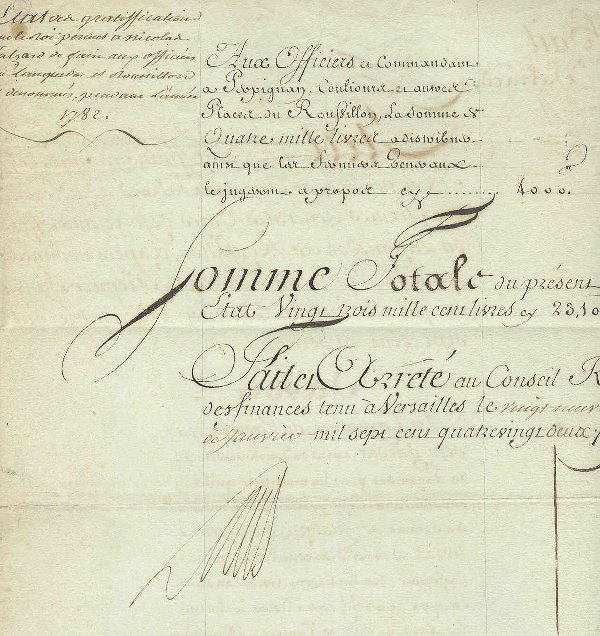 Etat des gratification
que le Roi permet a Nicolas
de faire aux officiers
Languedoc et Roussillon
dénommés, pendant l'année
1782.
Aux Officiers et Commandans
a Perpignan, Coulioure et autres
Places du Roussillon, La somme de
Quatre mille livres a distribuer
ainsi que les Fermiers Generaux
le jugeront a propos cy ........ 4000.
Somme Totale du présent
Etat Vingt trois mille cent livres cy 23,10
Fait et Arrêté au Conseil R
des finances tenu a Versailles le vingt neuf
de Janvier mil sept cent quatrevingt deux
Louis